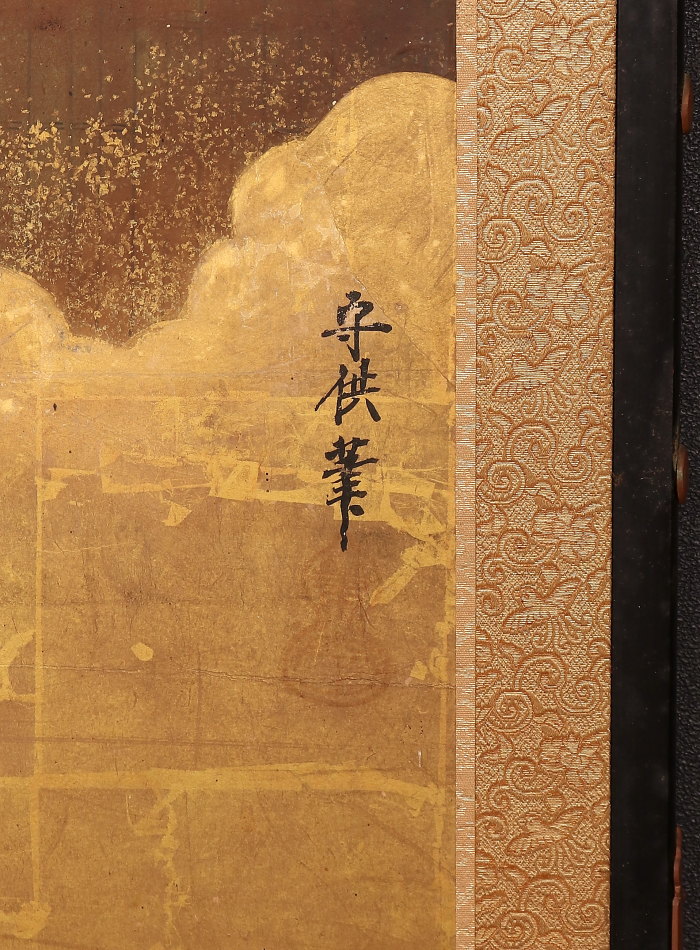 守供筆